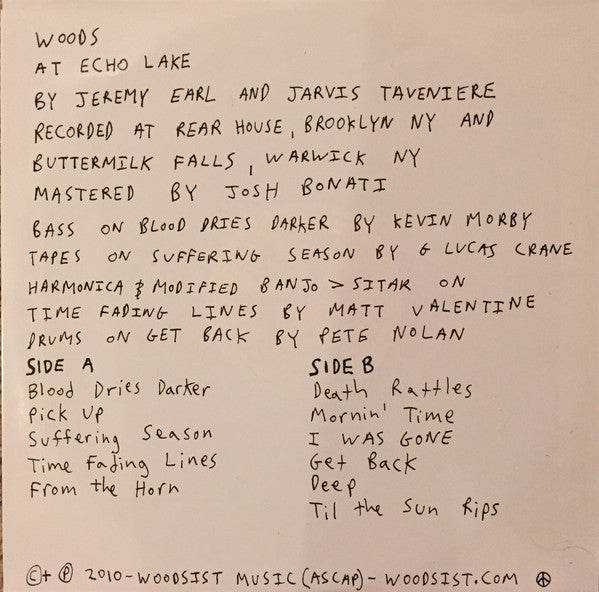 WOODS
AT ECHO LAKE
BY JEREMY EARL AND JARVIS TAVENIERE
RECORDED AT REAR HOUSE, BROOKLYN NY AND
BUTTERMILK FALLS, WARWICK NY
MASTERED BY JOSH BONATI
BASS ON BLOOD DRIES DARKER BY KEVIN MORBY
TAPES ON SUFFERING SEASON BY G LUCAS CRANE
HARMONICA & MODIFIED BANJO > SITAR ON
TIME FADING LINES BY MATT VALENTINE
DRUMS ON GET BACK BY PETE NOLAN
SIDE A
Blood Dries Darker
Pick Up
Suffering Season
Time Fading Lines
From the Horn
SIDE B
Death Rattles
Mornin' Time
I WAS GONE
Get Back
Deep
Til the Sun Rips
©+ ℗ 2010-WOODSIST MUSIC (ASCAP)- WOODSIST.COM ☮